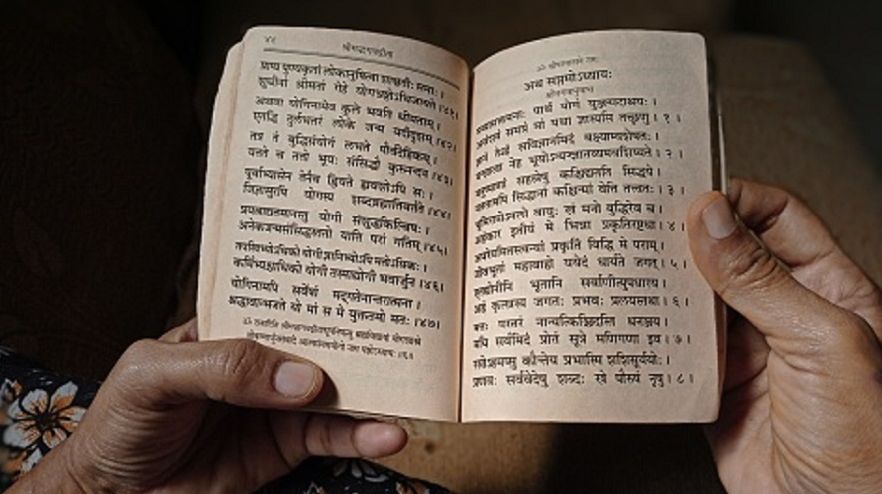 ४९
श्रीमद्भगवद्गीता
प्राप्य पुण्यकृतां लोकानुषित्वा शाश्वतीः समाः ।
शुचीनां श्रीमतां गेहे योगभ्रष्टोऽभिजायते ॥४१॥
अथवा योगिनामेव कुले भवति धीमताम् ।
एतद्धि दुर्लभतरं लोके जन्म यदीदृशम् ॥४२॥
तत्र तं बुद्धिसंयोगं लभते पौर्वदेहिकम् ।
यतते च ततो भूयः संसिद्धौ कुरुनन्दन ॥४३॥
पूर्वाभ्यासेन तेनैव ह्रियते ह्यवशोऽपि सः ।
जिज्ञासुरपि योगस्य शब्दब्रह्मातिवर्तते ॥४४॥
प्रयत्नाद्यतमानस्तु योगी संशुद्धकिल्बिषः ।
अनेकजन्मसंसिद्धस्ततो याति परां गतिम् ॥४५॥
तपस्विभ्योऽधिको योगी ज्ञानिभ्योऽपि मतोऽधिकः ।
कर्मिभ्यश्चाधिको योगी तस्माद्योगी भवार्जुन ॥४६॥
योगिनामपि सर्वेषां मद्गतेनान्तरात्मना ।
श्रद्धावान्भजते यो मां स मे युक्ततमो मतः ॥४७॥
ॐ तत्सदिति श्रीमद्भगवद्गीतासूपनिषत्सु ब्रह्मविद्यायां योगशास्त्रे
श्रीकृष्णार्जुनसंवादे आत्मसंयमयोगो नाम षष्ठोऽध्यायः ॥६॥
ॐ श्रीपरमात्मने नमः
अथ सप्तमोऽध्यायः
श्रीभगवानुवाच
मय्यासक्तमनाः पार्थ योगं युञ्जन्मदाश्रयः ।
असंशयं समग्रं मां यथा ज्ञास्यसि तच्छृणु ॥ १ ॥
ज्ञानं तेऽहं सविज्ञानमिदं वक्ष्याम्यशेषतः ।
यज्ज्ञात्वा नेह भूयोऽन्यज्ज्ञातव्यमवशिष्यते ॥ २ ॥
मनुष्याणां सहस्रेषु कश्चिद्यतति सिद्धये ।
यततामपि सिद्धानां कश्चिन्मां वेत्ति तत्त्वतः ॥ ३ ॥
भूमिरापोऽनलो वायुः खं मनो बुद्धिरेव च ।
अहंकार इतीयं मे भिन्ना प्रकृतिरष्टधा ॥ ४ ॥
अपरेयमितस्त्वन्यां प्रकृतिं विद्धि मे पराम् ।
जीवभूतां महाबाहो ययेदं धार्यते जगत् ॥ ५ ॥
एतद्योनीनि भूतानि सर्वाणीत्युपधारय ।
अहं कृत्स्नस्य जगतः प्रभवः प्रलयस्तथा ॥ ६ ॥
मत्तः परतरं नान्यत्किञ्चिदस्ति धनञ्जय ।
मयि सर्वमिदं प्रोतं सूत्रे मणिगणा इव ॥ ७ ॥
रसोऽहमप्सु कौन्तेय प्रभास्मि शशिसूर्ययोः ।
प्रणवः सर्ववेदेषु शब्दः खे पौरुषं नृषु ॥ ८ ॥